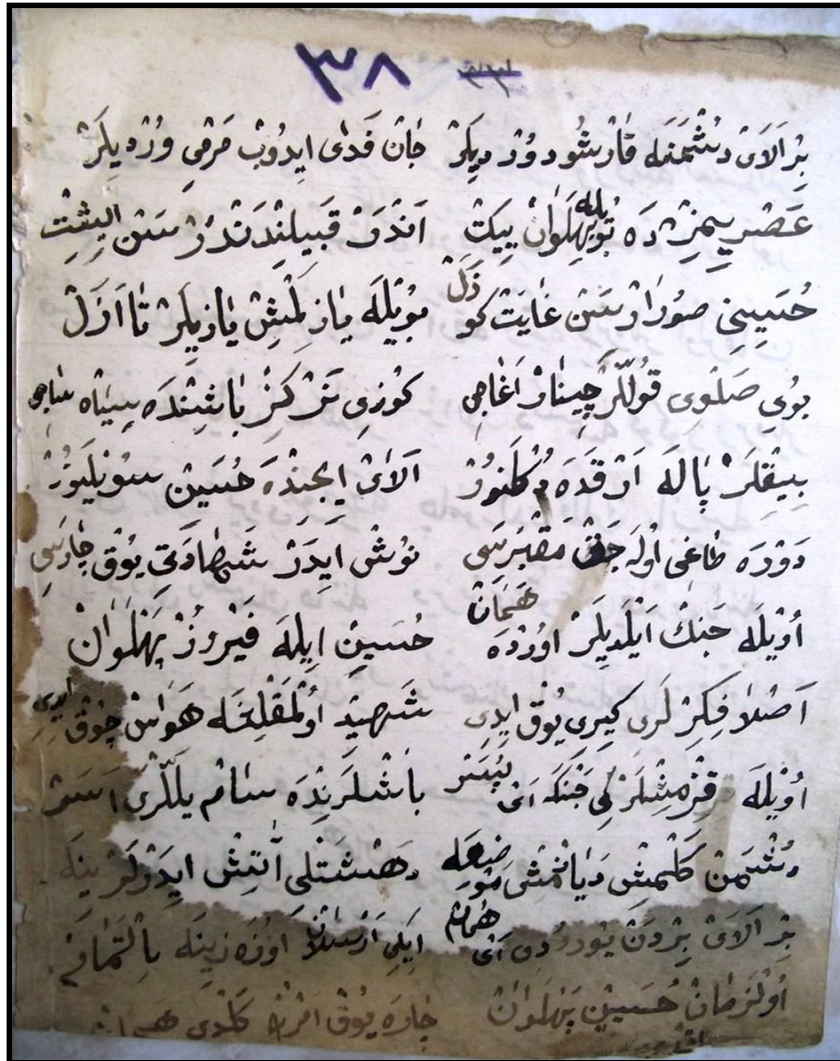 ٣٨
بِرْ اَلَاىْ دُشْمَنَه قَارْشُو دُوْرْ دِيلَرْ جَانْ فَدَى ايدُوبْ مَرْمِى وُرْدِيلَرْ
عَصْرِيمِزْدَه بُو پَهْلَوَانْ بِيكَتْ اَنْدَرْ قَبِيلِنْدَنْدُرْ سَنْ اِيشِتْ
حُسَيِنِى صُورَارْسَنْ غَايَتْ كُوزَلْ بُويْلَه يَازِلْمِشْ يَازِيلَرْ تَا اَزَلْ
بُويِى صَلْوِى قُولّلَرْ چِينَارْ اَغَاجِى كُوزِى نَرْكِزْ بَاشِنْدَه سِيَاه سَاجِى
بِيقْلَرْ پَالَه اَرْقَدَه اَلَاىْ اِيچِنْدَه حُسَيِنْ سُويْلَيُورْ
دَوْرَه طَاغِى اُولَه جَقْ مَقْبَرَسِى نُوشْ اَيدَرْ شَهَادَتِى يُوقْ چَارَسِى
اُويْلَه جَنْكْ اَيْلَدِيلَرْ اُورْدَه هَمَانْ حُسَيِنْ اِيلَه فَيْرُوزْ پَهْلَوَانْ
اَصْلَا فِكِرْ لَرِى كِيرِى يُوقْ ايدِى شَهِيدْ اُولْمَقْلِغَه هَوَاسْ چُوقْ ايدِى
اُويْلَه قِزْمِشْلَرْ كِى جَنْكَه اَنْ بَاشْلَرِنْدَه سَامْ يَلْلَرِى اَسَرْ
دُشْمَنْ كَلْمِشْ دَيَانْمِشْ دَهْشَتْلِى آتَشْ ايدَرْلَرْ يِنَه
بِرْ اَلَاىْ بِرْدَنْ يُورُودِى هَمَانْ اِيكِى اَرْسْلَانْ اُوزَرِينَه
اُولْزَمَانْ حُسَيِنْ پَهْلَوَانْ چَارَه يُوقْ كَلْدِى